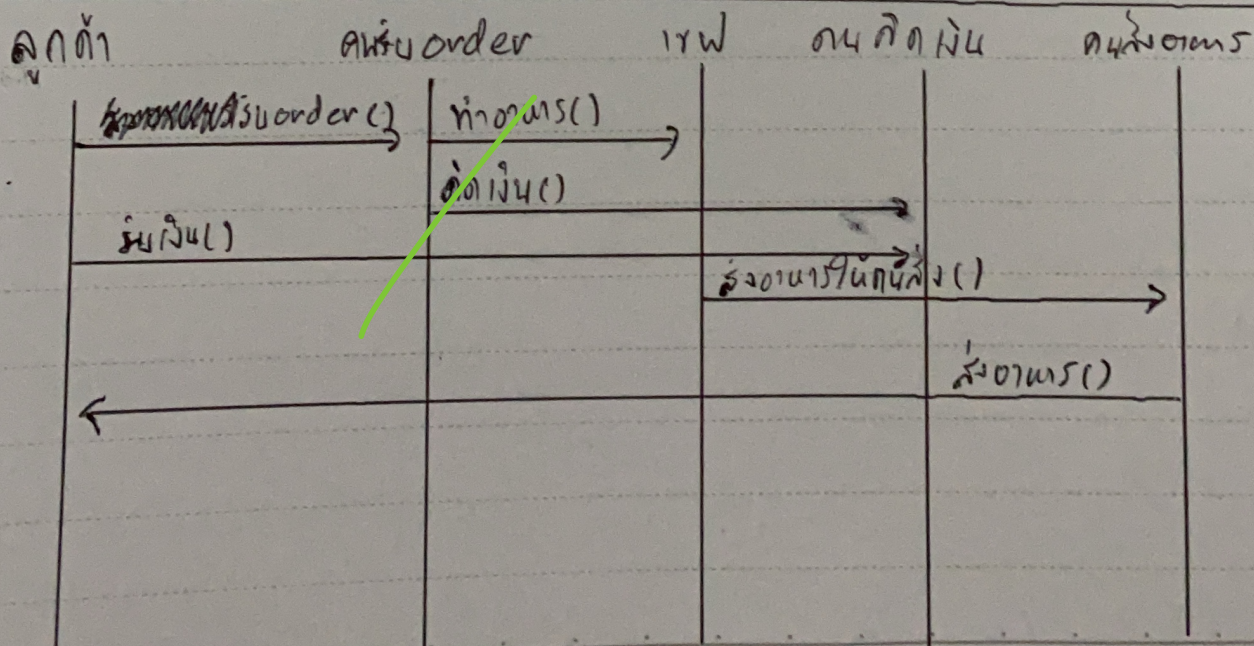 ลูกค้า คนรับ order เชฟ คนคิดเงิน คนส่งอาหาร
รับ order() ทำอาหาร()
คิดเงิน()
รับเงิน()
ส่งอาหารให้คนส่ง()
ส่งอาหาร()